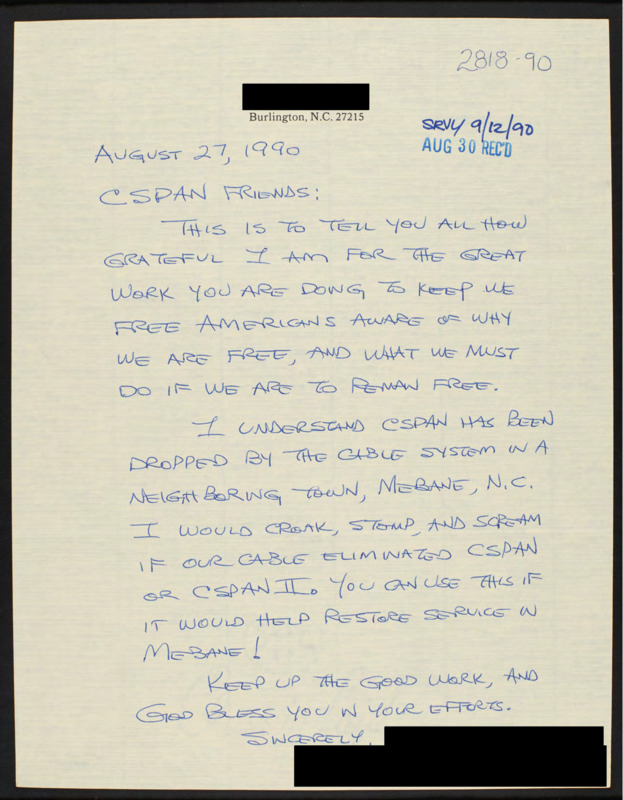 2818-90
Burlington, N.C. 27215
SRVY 9/12/90
AUG 30 REC'D
AUGUST 27, 1990
CSPAN FRIENDS:
THIS IS TO TELL YOU ALL HOW
GRATEFUL I AM FOR THE GREAT
WORK YOU ARE DOING TO KEEP WE
FREE AMERICANS AWARE OF WHY
WE ARE FREE, AND WHAT WE MUST
DO IF WE ARE TO REMAN FREE.
I UNDERSTAND CSPAN HAS BEEN
DROPPED BY THE CABLE SYSTEM IN A
NEIGHBORING TOWN, MEBANE, N.C.
I WOULD CROAK, STOMP, AND SCREAM
IF OUR CABLE ELIMINATED CSPAN
OR CSPAN II. YOU CAN USE THIS IF
IT WOULD HELP RESTORE SERVICE IN
MEBANE!
KEEP UP THE GOOD WORK, AND
GOD BLESS YOU IN YOUR EFFORTS.
SINCERELY,